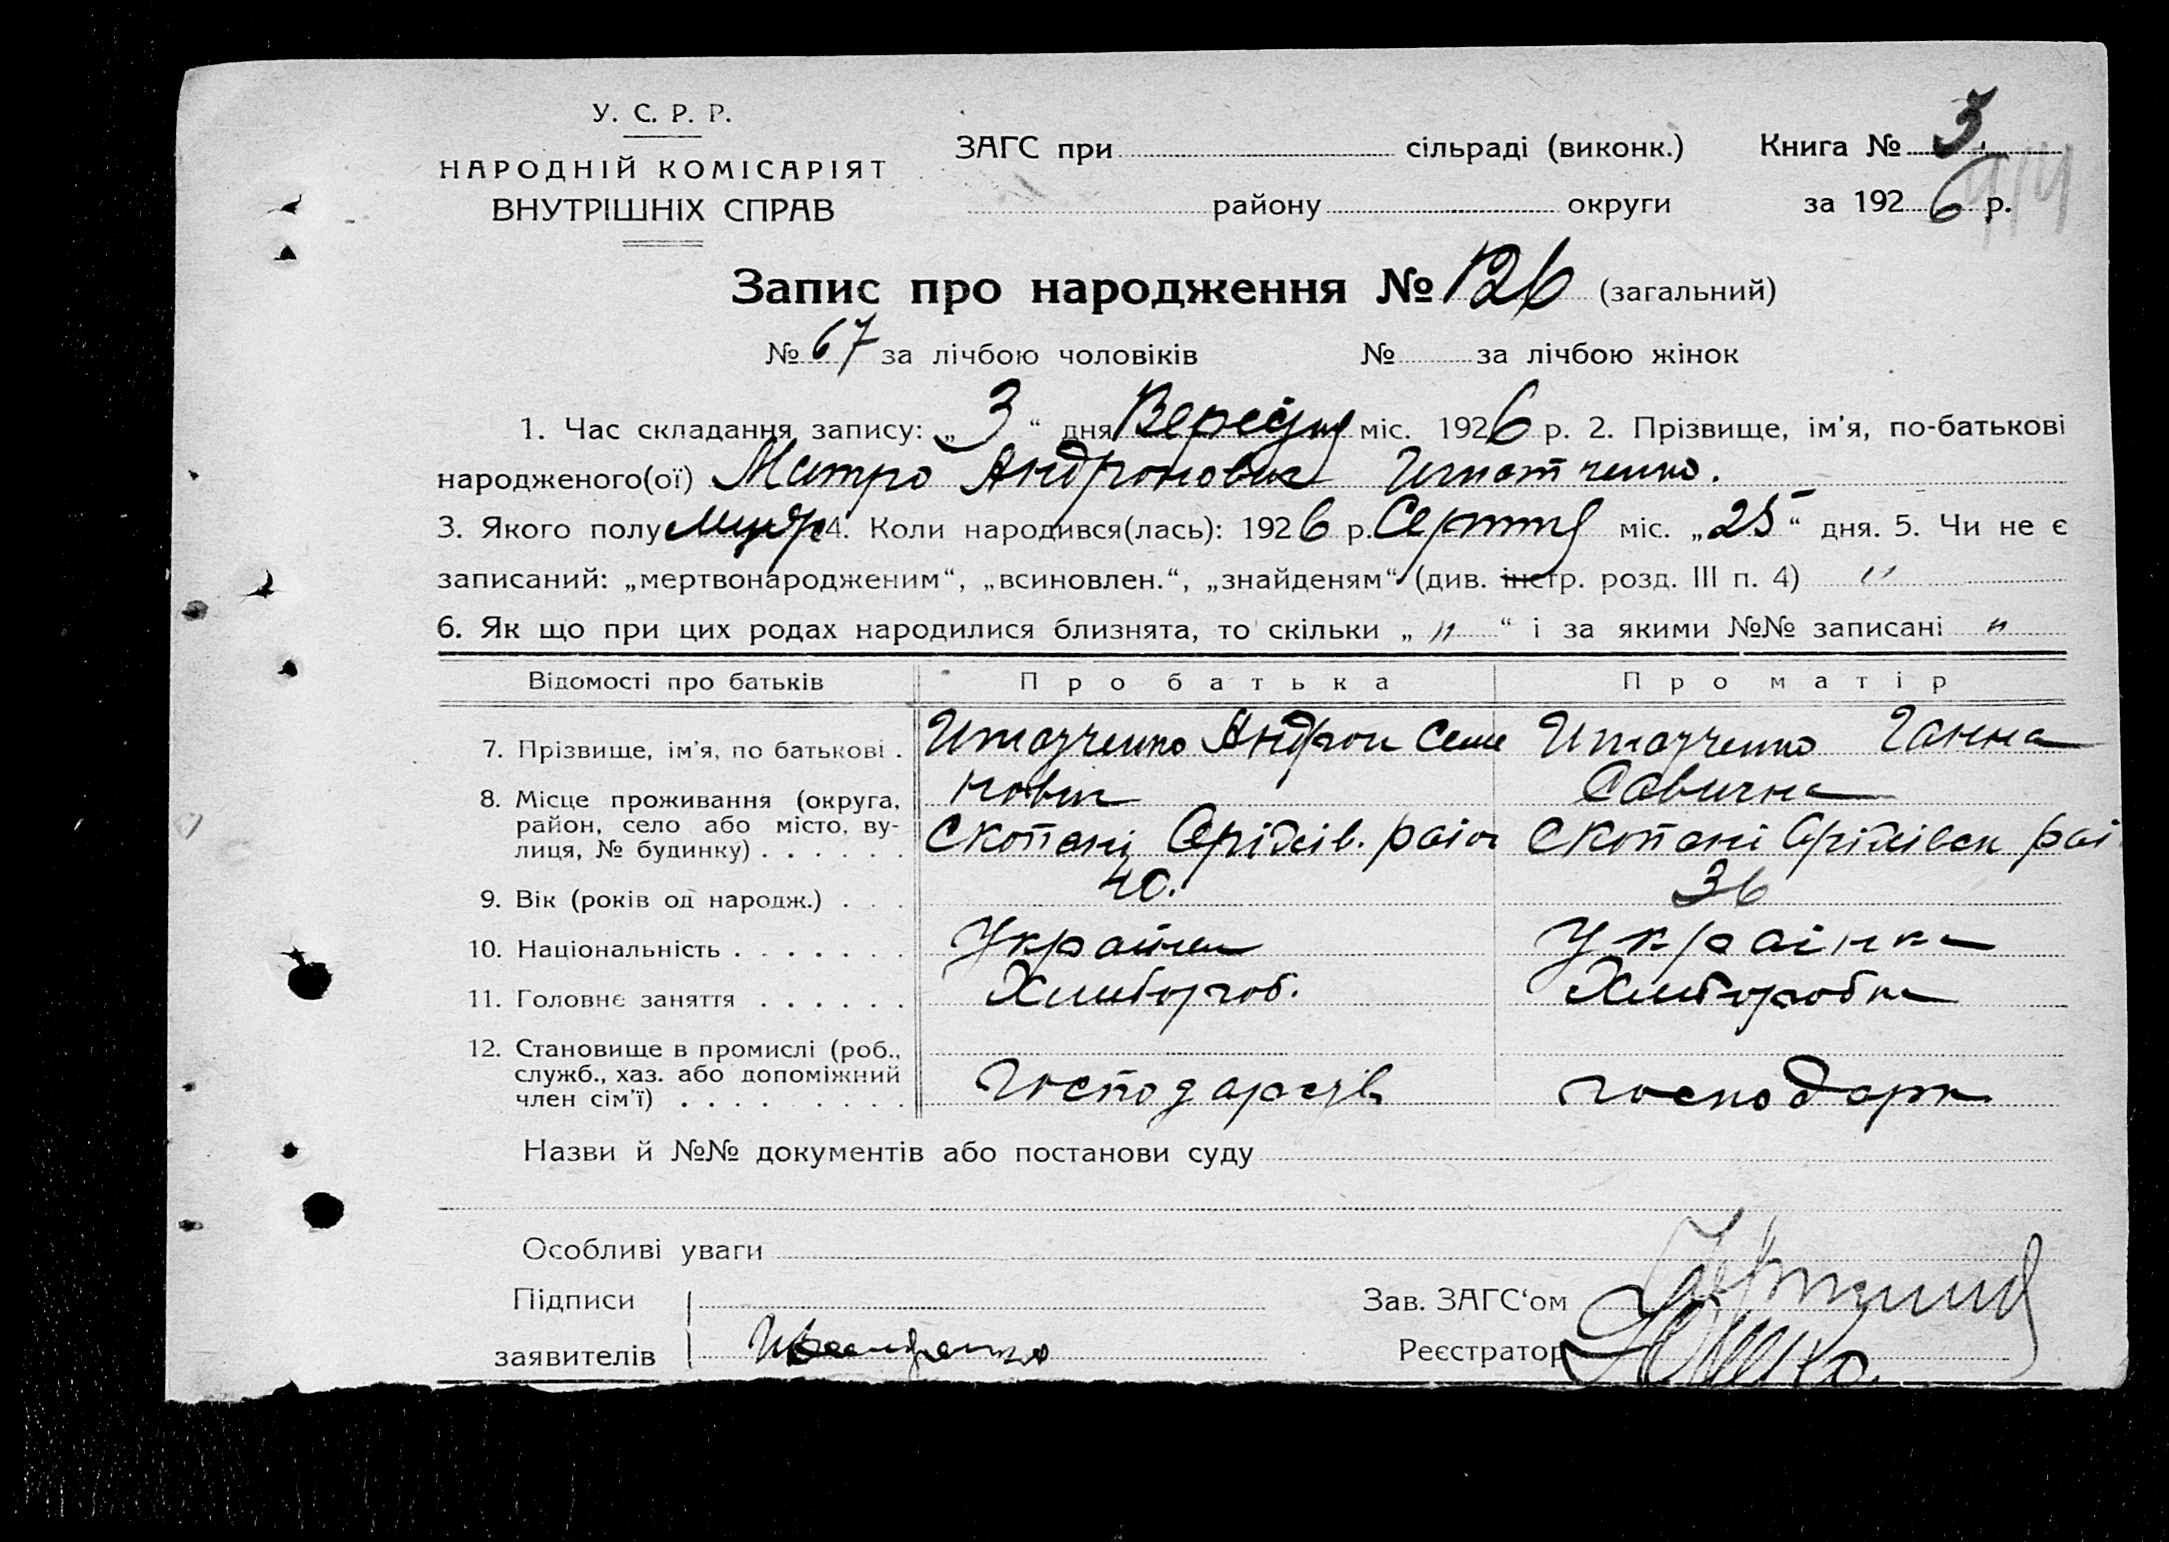 У. С. Р. Р.
НАРОДНІЙ КОМІСАРІЯТ
ВНУТРІШНІХ СПРАВ
ЗАГС при сільраді (виконк.) Книга № 3
району округи за 1926 р.
Запис про народження № 126 (загальний)
№ 67 за лічбою чоловіків № за лічбою жінок
1. Час складання запису: „3“ дня Вересня міс. 1926 р. 2. Прізвище, ім'я, по-батькові
народженого(ої) Митро Андронович
3. Якого полу 4. Коли народився(лась): 1926 р. Серпня міс. „25“ дня. 5. Чи не є
записаний: „мертвонародженим“, „всиновлен.“, „знайденям“ (див. інстр. розд. III п. 4) "
6. Як що при цих родах народилися близнята, то скільки „ " “ і за якими №№ записані "
Відомості про батьків Про батька Про матір
7. Прізвище, ім'я, по батькові . Андрон Семе Ганна
нович Савична
8. Місце проживання (округа,
район, село або місто, ву-
лиця, № будинку) . . . . . . Скопані Скопані
9. Вік (років од народж.) . . . 40. 36
10. Національність . . . . . . . Українец Українка
11. Головне заняття . . . . . . Хлибороб. Хлиборобка
12. Становище в промислі (роб.,
служб., хаз. або допоміжний
член сім'ї) . . . . . . . . . господарка
Назви й №№ документів або постанови суду
Особливі уваги
Підписи
заявителів
Зав. ЗАГС‘ом
Реєстратор